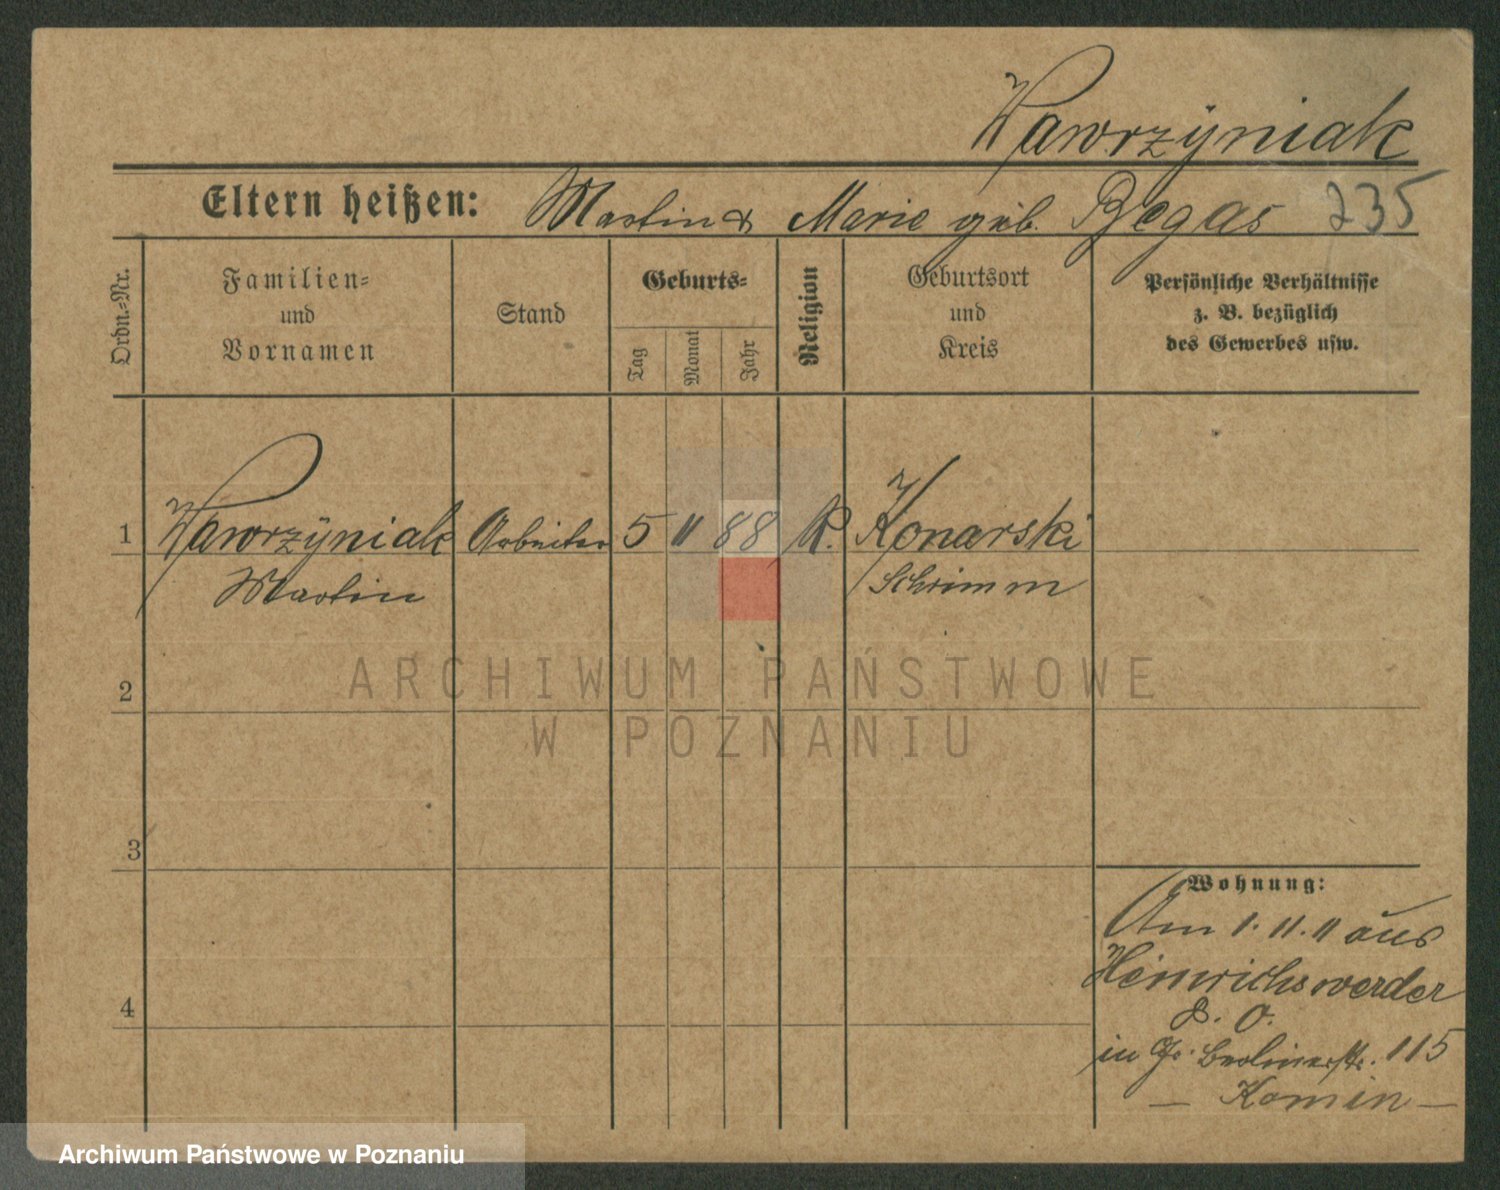 Wawrzÿniak
Eltern heißen: Martin & Marie geb. Begas 235
Ordn.-Nr.
Familien-
und
Vornamen
Stand
Geburts-
Tag
Monat
Jahr
Religion
Geburtsort
und
Kreis
Persönliche Verhältnisse
z. B. bezüglich
des Gewerbes usw.
1 Wawrzÿniak Arbeiter 5 11 88 K. Konarski
Martin Schrimm
ARCHIWUM PAŃSTWOWE
W POZNANIU
2
3
4
Wohnung:
Am 1.11.11 aus
Heinrichswerder
in Gr. Berlinerstr. 115
— Komin —
Archiwum Państwowe w Poznaniu